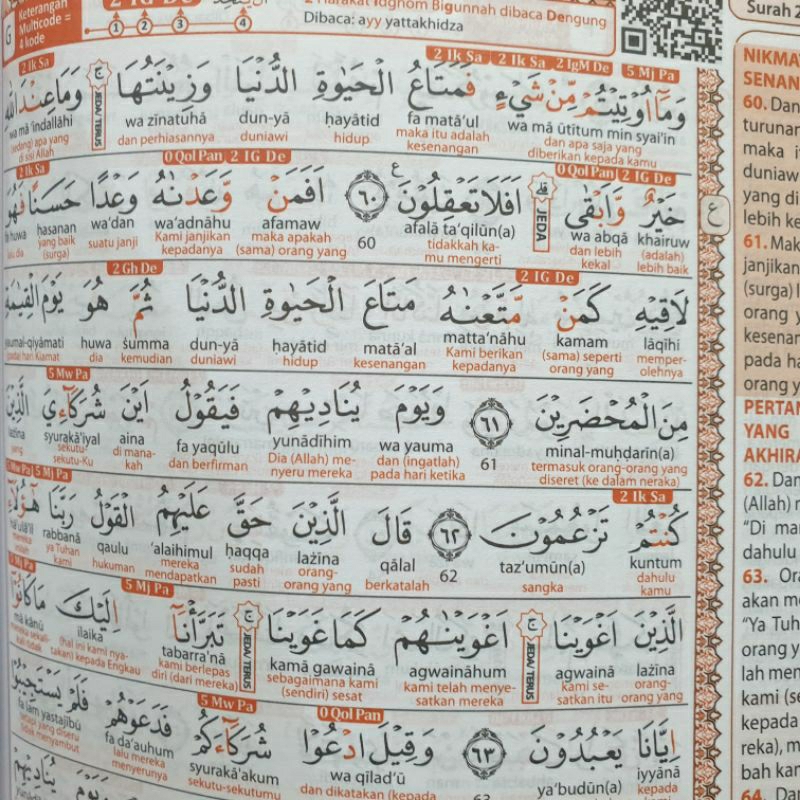 Keterangan
Multicode =
4 kode
1 2 3 4
Harakat Idghom Bigunnah dibaca Dengung
Dibaca: ayy yattakhidza
Surah 2
2 Ik Sa 2 Ik Sa 2 Ik Sa 2 IgM De 5 Mj Pa
وَمَآ اُوْتِيْتُمْ مِّنْ شَيْءٍ فَمَتَاعُ الْحَيٰوةِ الدُّنْيَا وَزِيْنَتُهَا ۚ وَمَا عِنْدَ اللّٰهِ
wa mā ūtitum min syai'in fa matā'ul ḥayātid dun-yā wa zīnatuhā JEDA/ TERUS wa mā 'indallāhi
dan apa saja yang diberikan kepada kamu maka itu adalah kesenangan hidup duniawi dan perhiasannya (sedang) apa yang di sisi Allah
2 Ik Sa 0 Qol Pan 2 IG De 0 Qol Pan 2 IG De
خَيْرٌ وَّاَبْقٰى ۗ اَفَلَا تَعْقِلُوْنَ ٦٠ اَفَمَنْ وَّعَدْنٰهُ وَعْدًا حَسَنًا فَهُوَ
khairuw wa abqā JEDA afalā ta'qilūn(a) 60 afamaw wa'adnāhu wa'dan ḥasanan huwa
(adalah) lebih baik dan lebih kekal tidakkah kamu mengerti maka apakah (sama) orang yang Kami janjikan kepadanya suatu janji yang baik (surga)
2 Gh De 2 IG De
لَاقِيْهِ كَمَنْ مَّتَّعْنٰهُ مَتَاعَ الْحَيٰوةِ الدُّنْيَا ثُمَّ هُوَ يَوْمَ الْقِيٰمَةِ
lāqīhi kamam matta'nāhu matā'al ḥayātid dun-yā ṡumma huwa yaumal-qiyāmati
memperolehnya (sama) seperti orang yang Kami berikan kepadanya kesenangan hidup duniawi kemudian dia pada hari Kiamat
5 Mw Pa
مِنَ الْمُحْضَرِيْنَ ٦١ وَيَوْمَ يُنَادِيْهِمْ فَيَقُوْلُ اَيْنَ شُرَكَآءِيَ الَّذِيْنَ
minal-muḥḍarīn(a) 61 wa yauma yunādīhim fa yaqūlu aina syurakā'iyal lażīna
termasuk orang-orang yang diseret (ke dalam neraka) dan (ingatlah) pada hari ketika Dia (Allah) menyeru mereka dan berfirman di manakah sekutu-sekutu-Ku yang
5 Mw Pa 5 Mj Pa 2 Ik Sa
كُنْتُمْ تَزْعُمُوْنَ ٦٢ قَالَ الَّذِيْنَ حَقَّ عَلَيْهِمُ الْقَوْلُ رَبَّنَا هٰٓؤُلَآءِ
kuntum taz'umūn(a) 62 qālal lażīna ḥaqqa 'alaihimul qaulu rabbanā hā'ulā'il
dahulu kamu sangka berkatalah orang-orang yang sudah pasti mereka mendapatkan hukuman ya Tuhan kami mereka inilah
5 Mj Pa 5 Mj Pa
الَّذِيْنَ اَغْوَيْنَا ۚ اَغْوَيْنٰهُمْ كَمَا غَوَيْنَا ۚ تَبَرَّأْنَآ اِلَيْكَ مَا كَانُوْٓا
lażīna agwainā JEDA/ TERUS agwaināhum kamā gawainā JEDA/ TERUS tabarra'nā ilaika mā kānū
orang-orang yang kami sesatkan itu kami telah menyesatkan mereka sebagaimana kami (sendiri) sesat kami berlepas diri (dari mereka) (hal ini kami nyatakan) kepada Engkau mereka sekali-kali tidak
5 Mw Pa 0 Qol Pan
اِيَّانَا يَعْبُدُوْنَ ٦٣ وَقِيْلَ ادْعُوْا شُرَكَآءَكُمْ فَدَعَوْهُمْ فَلَمْ يَسْتَجِيْبُوْا
iyyānā ya'budūn(a) 63 wa qīlad'ū syurakā'akum fa da'auhum fa lam yastajībū
kepada dan dikatakan (kepada sekutu-sekutumu lalu mereka menyerunya tetapi yang diseru tidak menyambut
NIKMA
SENAN
60. Dan
turunan
maka i
duniaw
yang di
lebih ke
61. Mak
janjikan
(surga) l
orang y
kesenan
pada ha
orang y
PERTAN
YANG
AKHIRA
62. Dan
(Allah) m
"Di man
dahulu
63. Ora
akan me
"Ya Tuh
orang y
lah men
kami (se
kepada
reka), m
bah kam
64. Dan